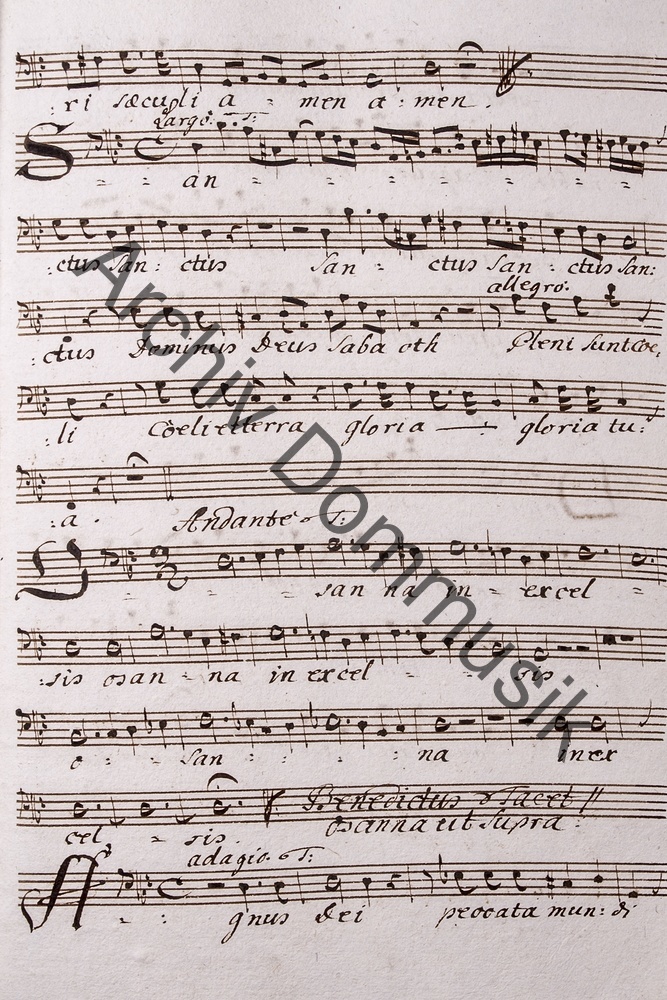 :ri sæculi a - men a : men.
Largo. T:
San - - - - -
:ctus San: ctus San - ctus San - ctus San:
allegro.
:ctus Dominus Deus Saba oth Pleni Sunt Coe,
:li Coeli et terra gloria — gloria tu:
:a. Andante T:
O - - san na in - excel -
:sis osan - na in excel - - sis
o - san - - - na in ex
cel - sis. Benedictus Tacet //
osanna ut Supra:
adagio. T:
A - : gnus Dei peccata mun: di
Archiv Dommusik